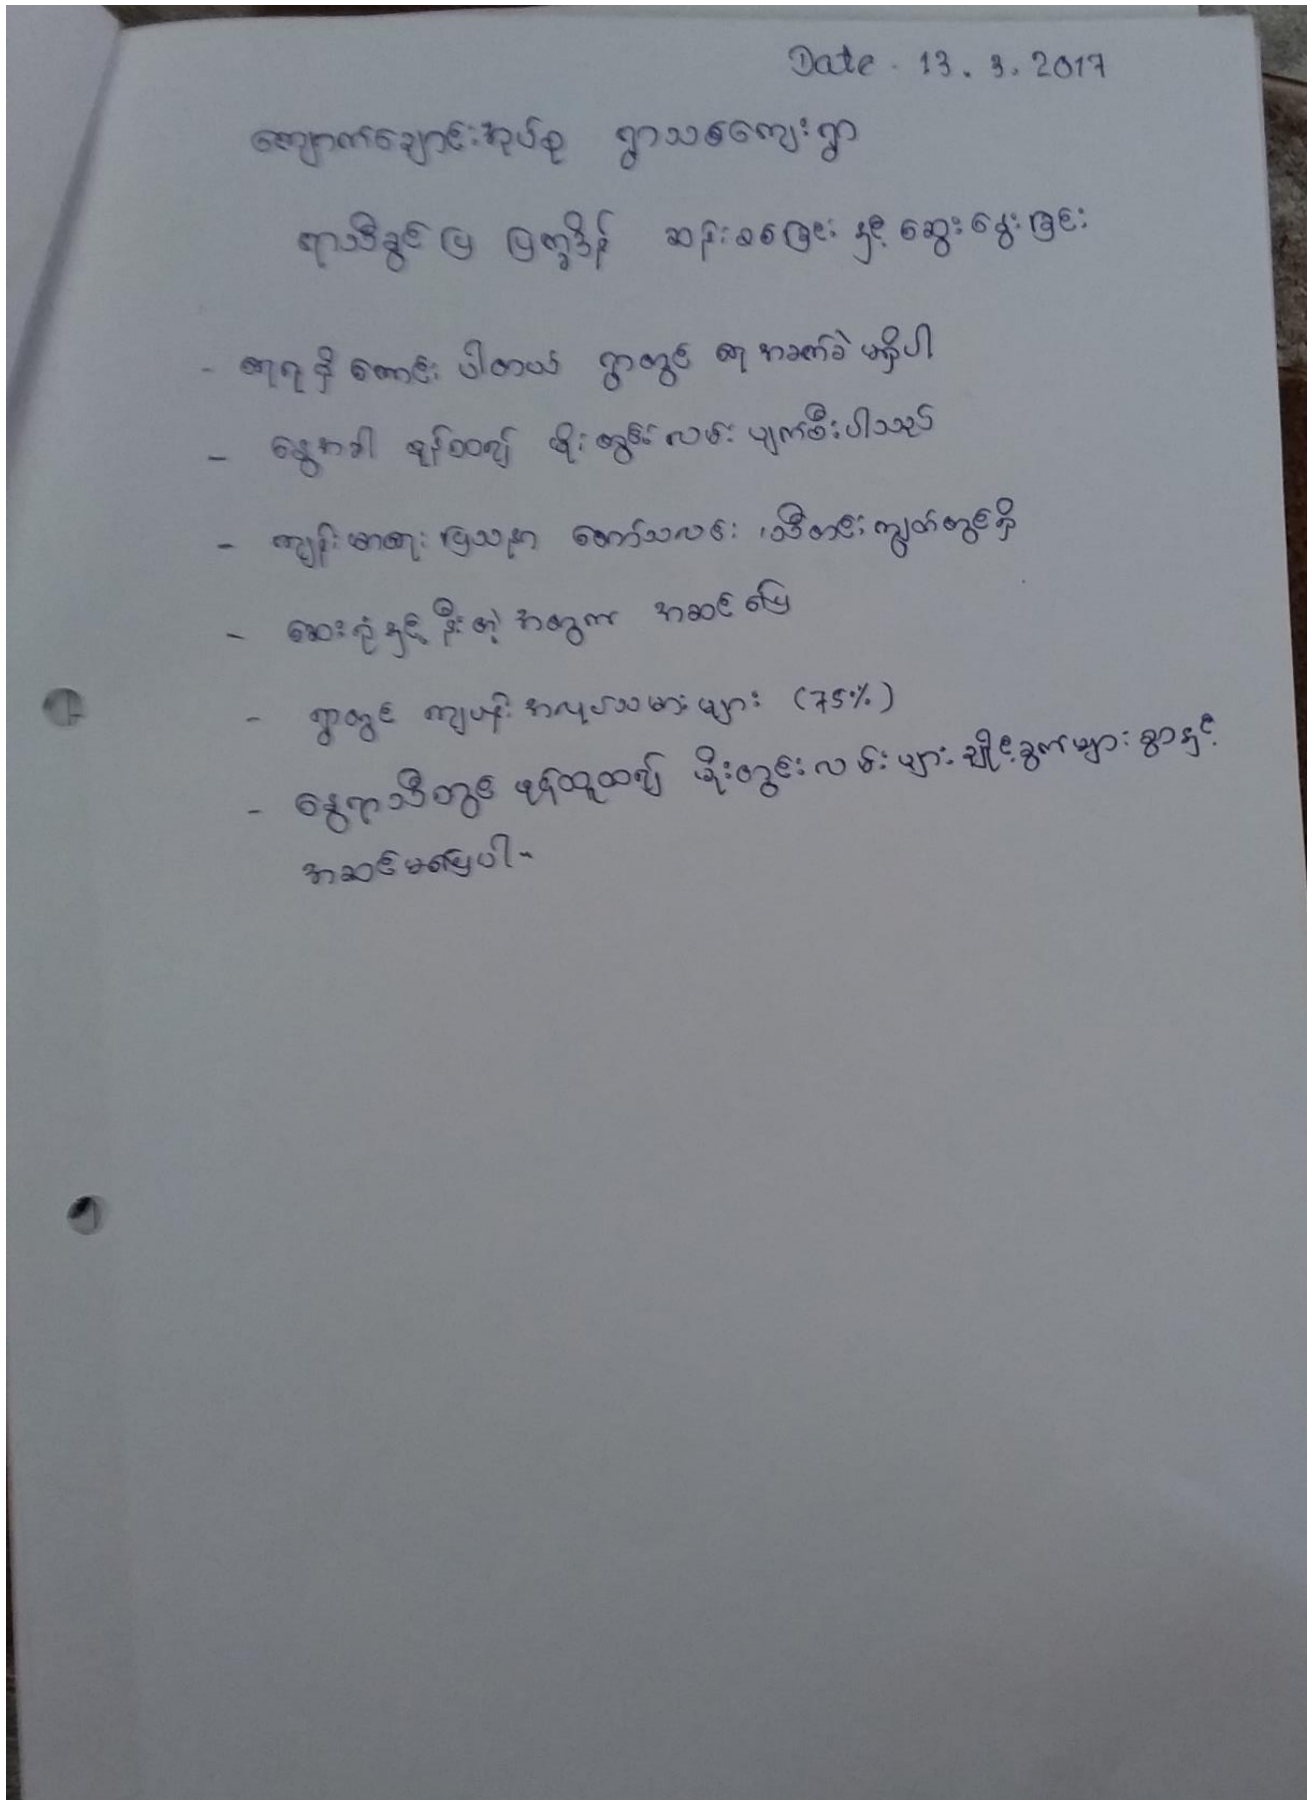 Date. 13. 3. 2017
ကျောက်ချောင်းအုပ်စု ရွာသစ်ကျေးရွာ
ရာသီခွင်ပြ ပြက္ခဒိန် ဆန်းစစ်ခြင်း နှင့် ဆွေးနွေးခြင်း
- ရေရရှိကောင်းပါတယ် ရွာတွင် ရေအခက်ခဲ မရှိပါ
- နွေအခါ ဖုန်ထ၍ မိုးတွင်းလမ်း ပျက်စီးပါသည်
- ကျန်းမာရေး ပြဿနာ တော်သလင်း သီတင်းကျွတ်တွင်ရှိ
- ဆေးရုံနှင့် နီးတဲ့ အတွက် အဆင်ပြေ
- ရွာတွင် ကျပန်းအလုပ်သမားများ (75%)
- နွေရာသီတွင် ဖုန်ထူထ၍ မိုးတွင်းလမ်းများ ချိုင့်ခွက်များစွာနှင့်
အဆင်မပြေပါ-